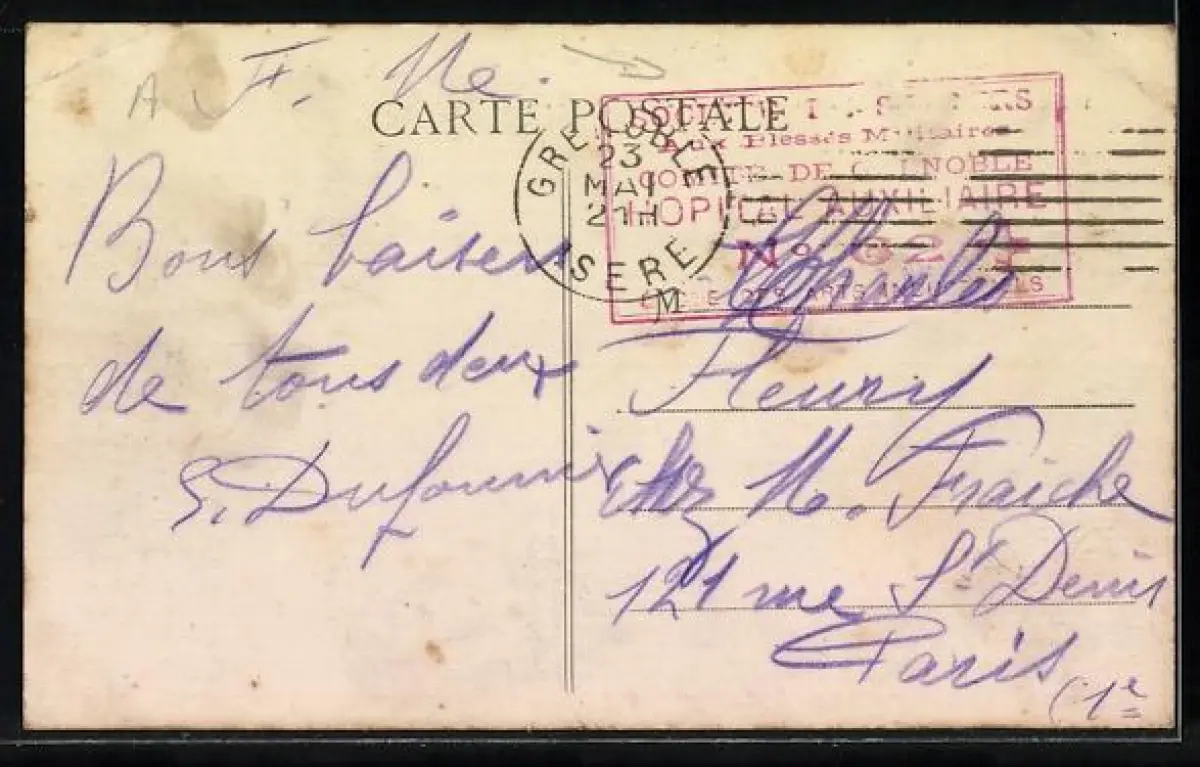 A F. Me.
CARTE POSTALE
GRENOBLE
23
MAI
21H
ISERE
SOCI
Aux Blessés Militaires
COMITE DE GRENOBLE
HOPITAL AUXILIAIRE
No 62
Bons baisers
de tous deux
M Charles
Fleury
chez M. Fraiche
121 rue St Denis
Paris
(1e